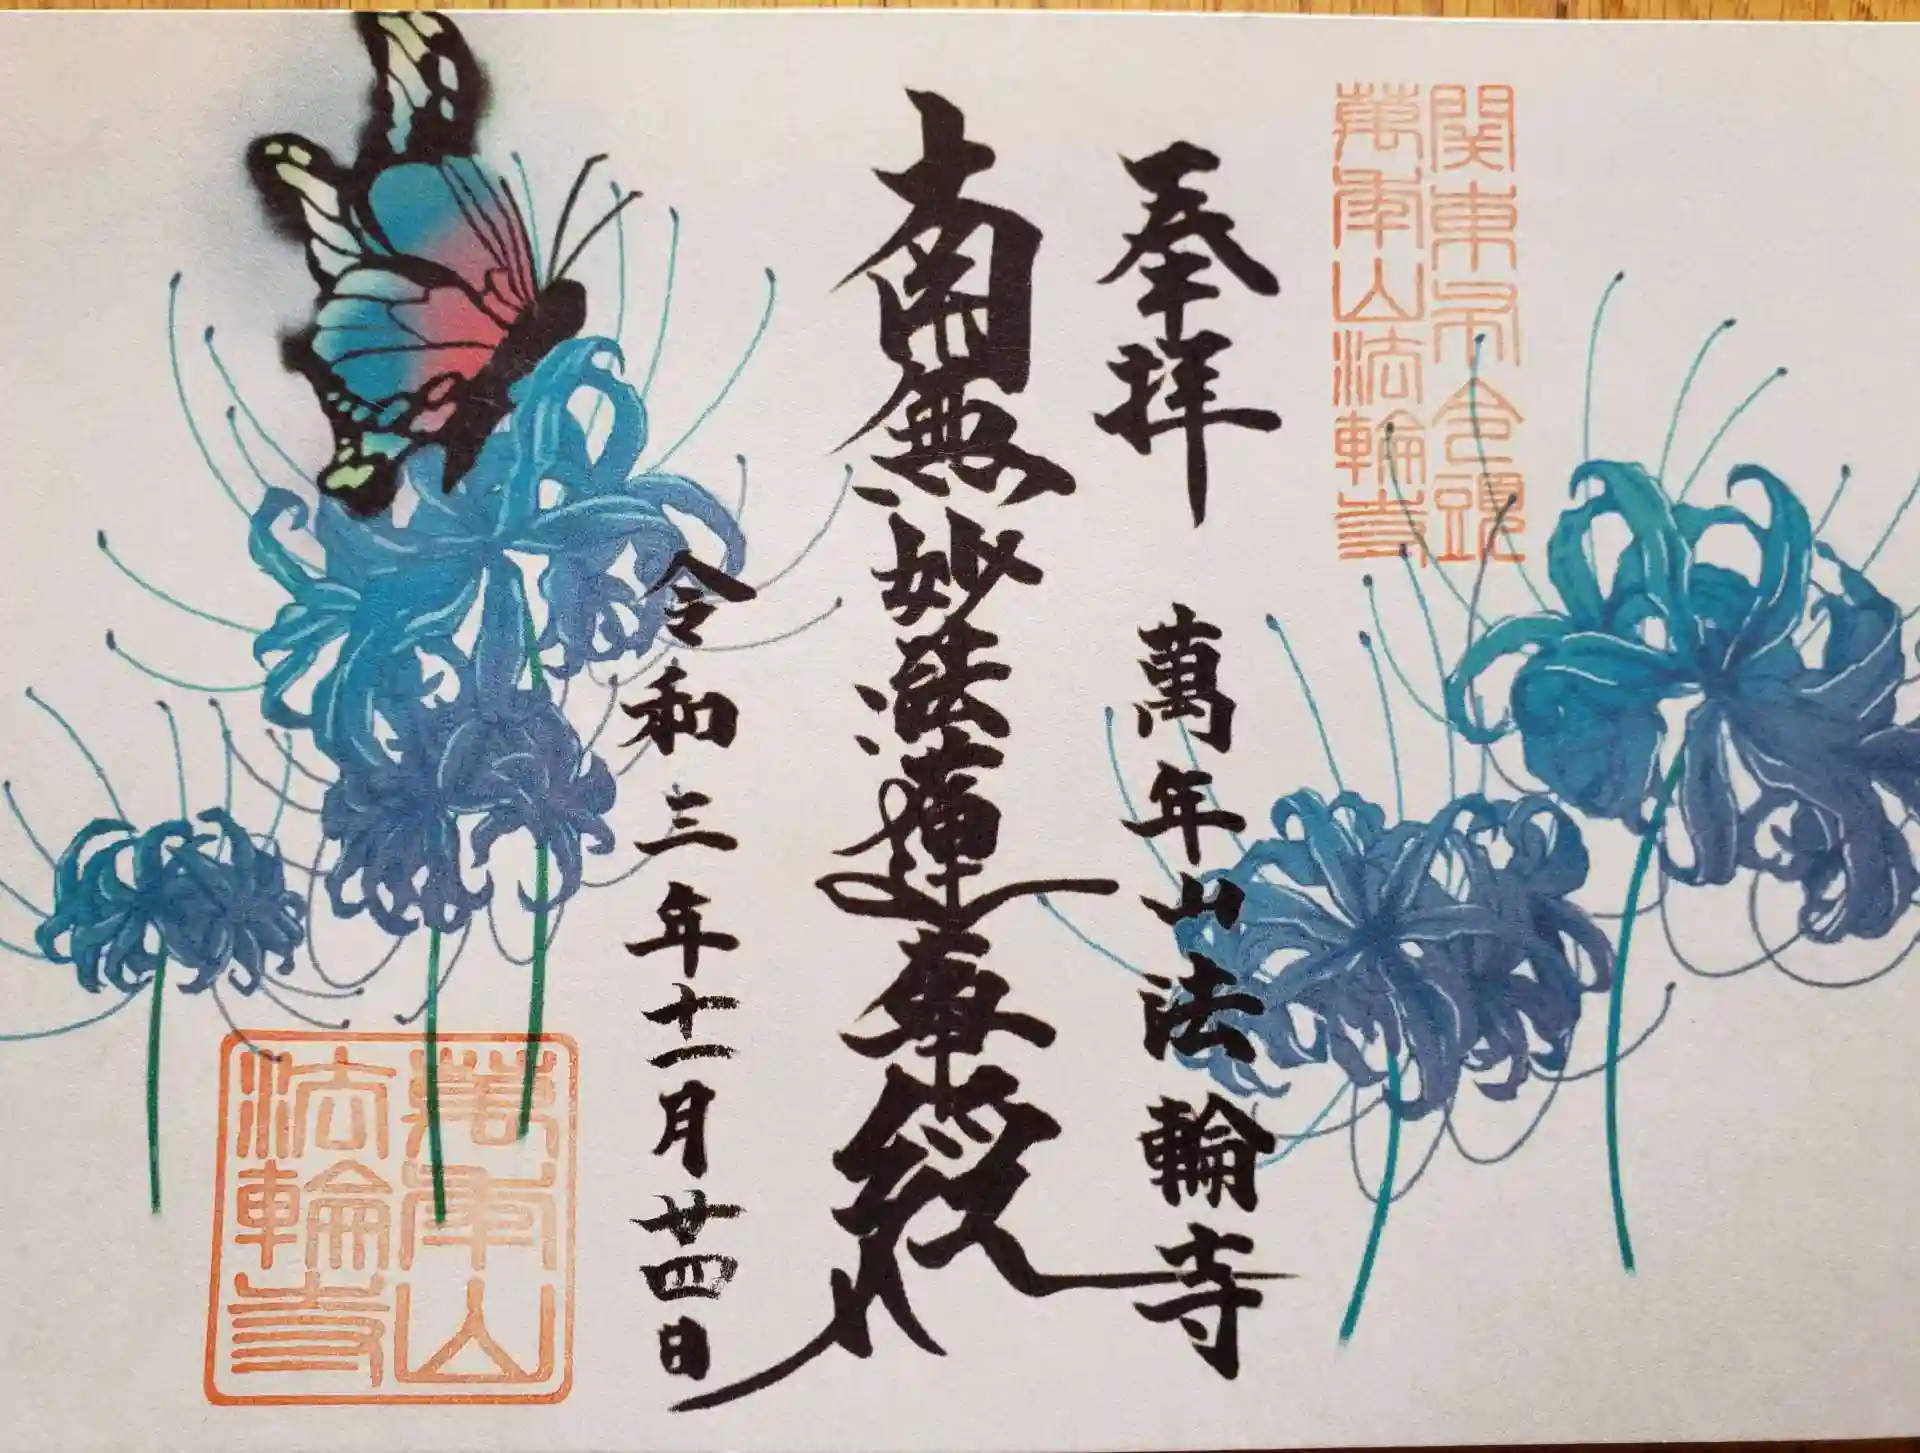 関東不令頭
萬年山法輪寺
奉拝 萬年山法輪寺
南無妙法蓮華経
令和三年十一月廿四日
萬年山
法輪寺